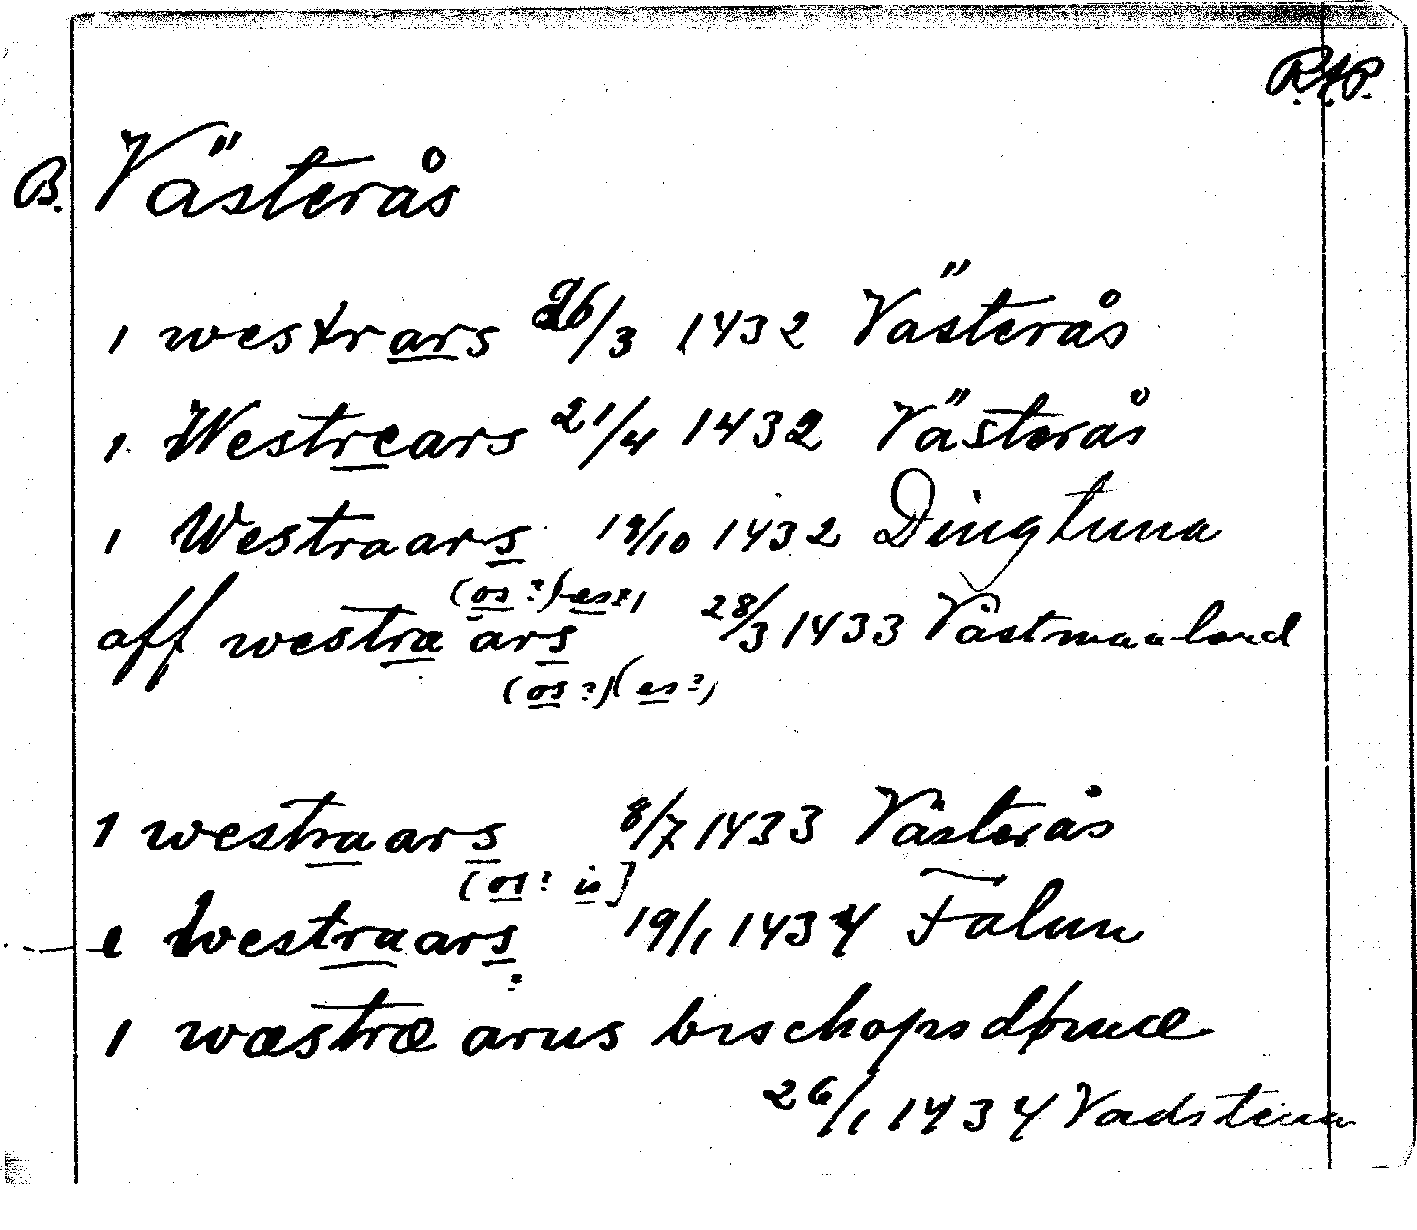 R.A.P.
B. Västerås
ı westrars 26/3 1432 Västerås
ı Westrears 21/4 1432 Västerås
ı Westraars 19/10 1432 Dingtuna
(os?) (es?)
aff westra ars 28/3 1433 Västmanland
(os?) (es?)
ı westraars 8/7 1433 Västerås
[os? is]
ı westraars 19/1 1434 Falun
ı wæstræ arus bischopsdøme
26/1 1434 Vadstena